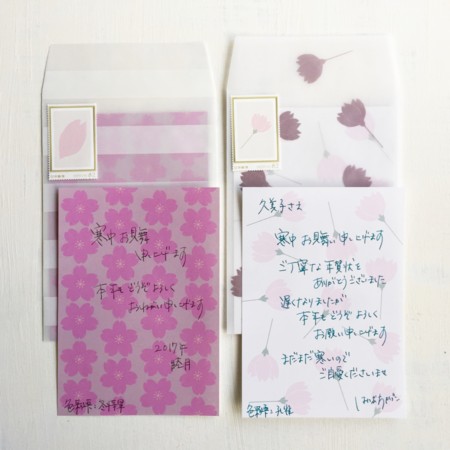 寒中お見舞
申し上げます
本年もどうぞよろしく
お願い申し上げます
2017年
睦月
久美子さま
寒中お見舞い申し上げます
ご丁寧な年賀状を
ありがとうございました
遅くなりましたが
本年もどうぞよろしく
お願い申し上げます
まだまだ寒いので
ご自愛くださいませ